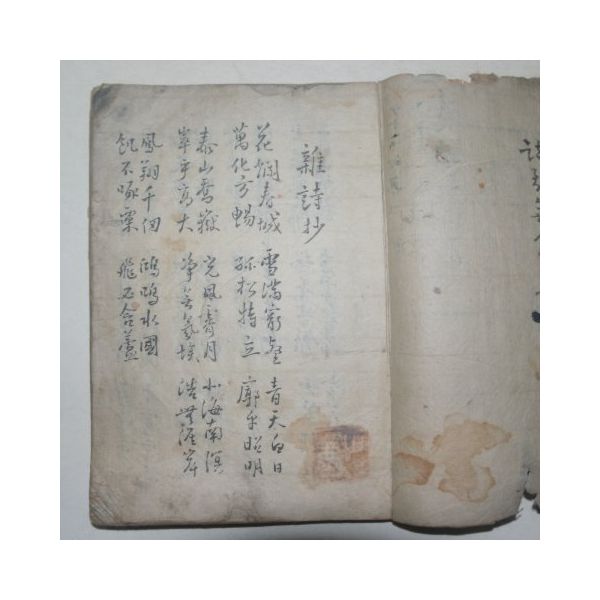 雜詩抄
花爛春城 雪滿窮壑 青天白日
萬化方暢 孤松特立 廓乎昭明
泰山喬嶽 光風霽月 北海南溟
崒乎高大 净无氛埃 浩無涯岸
鳳翔千仞 鴻鳴水國
飢不啄粟 飛必含蘆